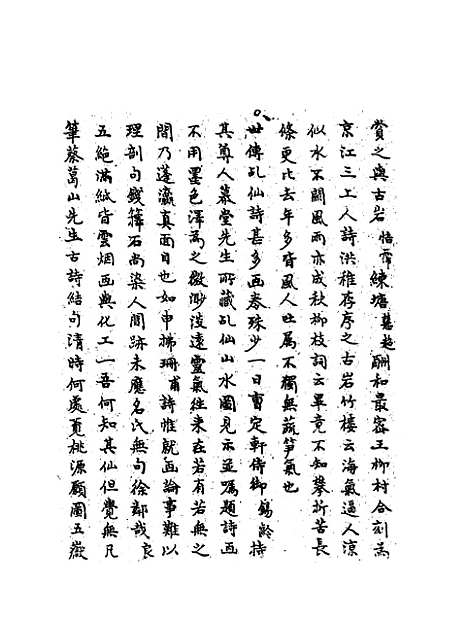 賞之與古岩恬齋練塘慧超酬和最密王柳村合刻為
京江三上人詩洪稚存序之古岩竹樓云海氣逼人涼
似水不關風雨亦成秋柳枝詞云畢竟不知攀折苦長
條更比去年多皆風人吐屬不獨無蔬筍氣也
世傳乩仙詩甚多画卷殊少一日曹定軒侍御錫齡持
其尊人慕堂先生所藏乩仙山水圖見示並囑題詩画
不用墨色澤為之微渺淡遠靈氣往來在若有若無之
間乃蓬瀛真面目也如申拂珊甫詩惟就画論事難以
理剖句錢籜石尚染人間跡未應名氏無句徐鄰哉良
五絕滿紙皆雲烟画與化工一吾何知其仙但覺無凡
筆蔡葛山先生古詩結句清時何處覓桃源願圖五嶽